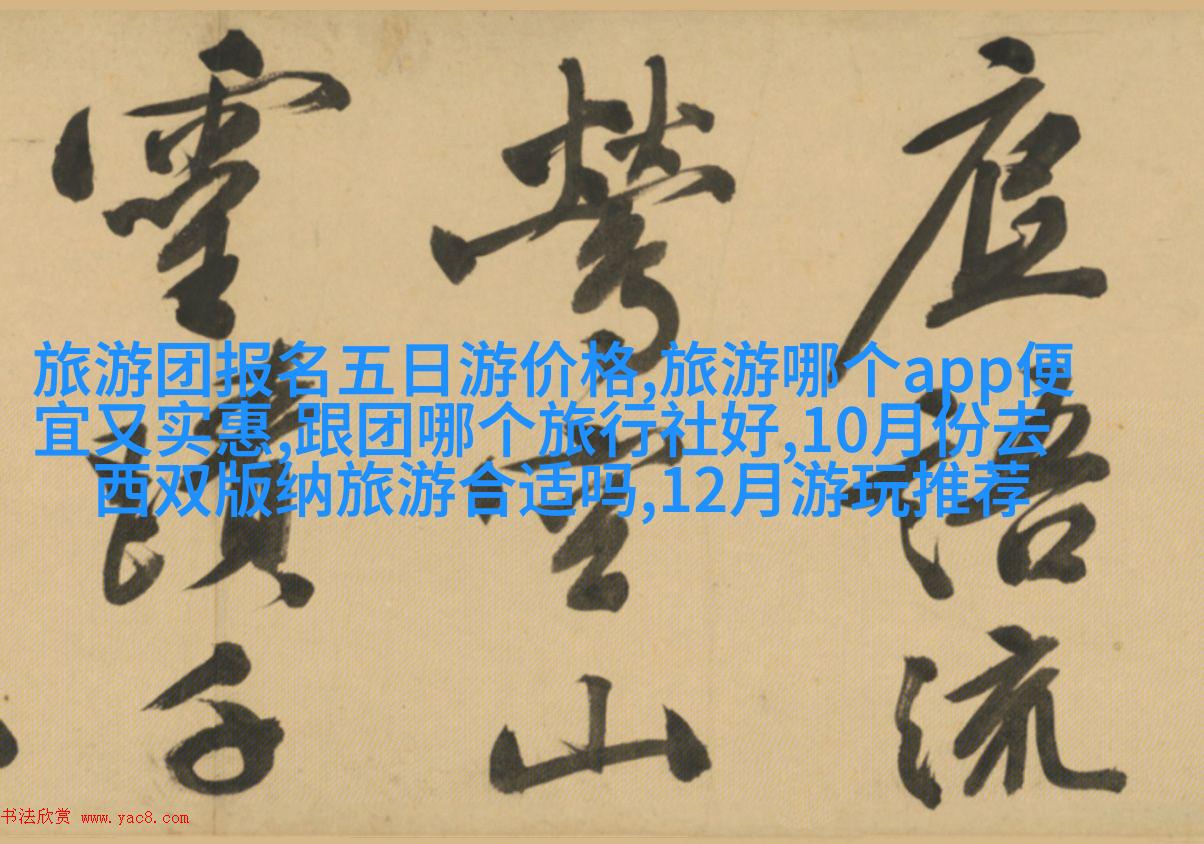 庭語流
鶯雲山
靈蹟千
旅游团报名五日游价格,旅游哪个app便
宜又实惠,跟团哪个旅行社好,10月份去
西双版纳旅游合适吗,12月游玩推荐
书法欣赏 www.yac8.com